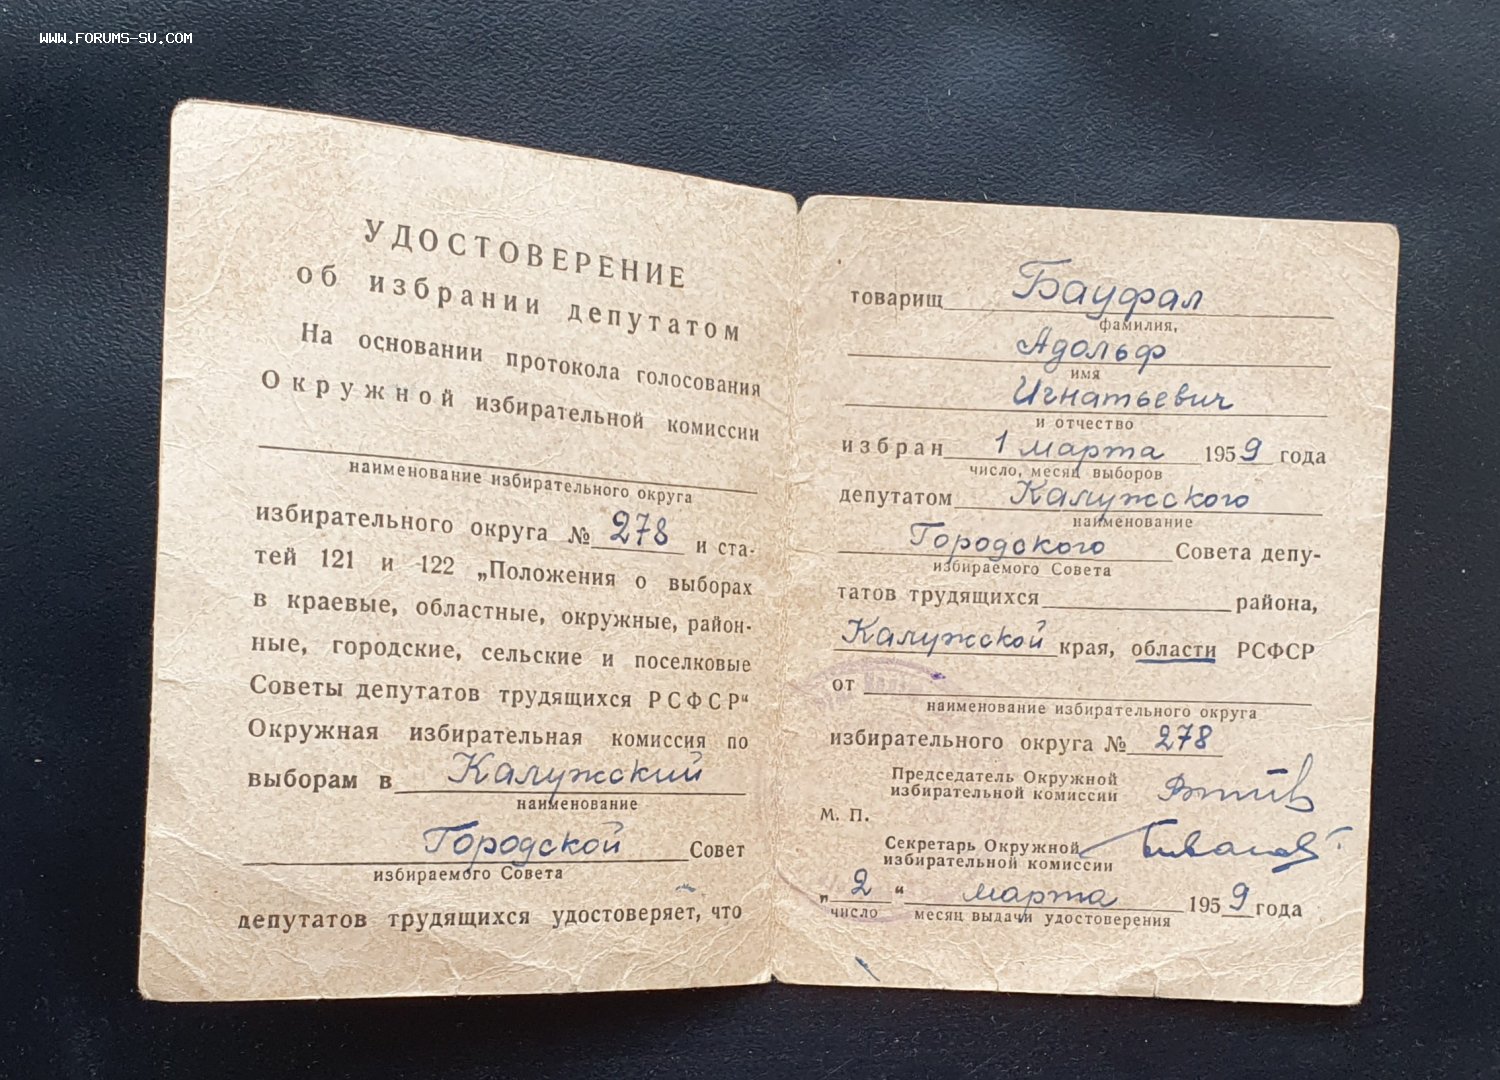 WWW.FORUMS-SU.COM
УДОСТОВЕРЕНИЕ
об избрании депутатом
На основании протокола голосования
Окружной избирательной комиссии
наименование избирательного округа
избирательного округа № 278 и ста-
тей 121 и 122 „Положения о выборах
в краевые, областные, окружные, район-
ные, городские, сельские и поселковые
Советы депутатов трудящихся РСФСР“
Окружная избирательная комиссия по
выборам в Калужский
наименование
Городской Совет
избираемого Совета
депутатов трудящихся удостоверяет, что
товарищ Бауфал
фамилия,
Адольф
имя
Игнатьевич
и отчество
избран 1 марта 1959 года
число, месяц выборов
депутатом Калужского
наименование
Городского Совета депу-
избираемого Совета
татов трудящихся района,
Калужской края, области РСФСР
от
наименование избирательного округа
избирательного округа № 278
Председатель Окружной
избирательной комиссии
М. П.
Секретарь Окружной
избирательной комиссии
„ 2 “ марта 1959 года
число месяц выдачи удостоверения